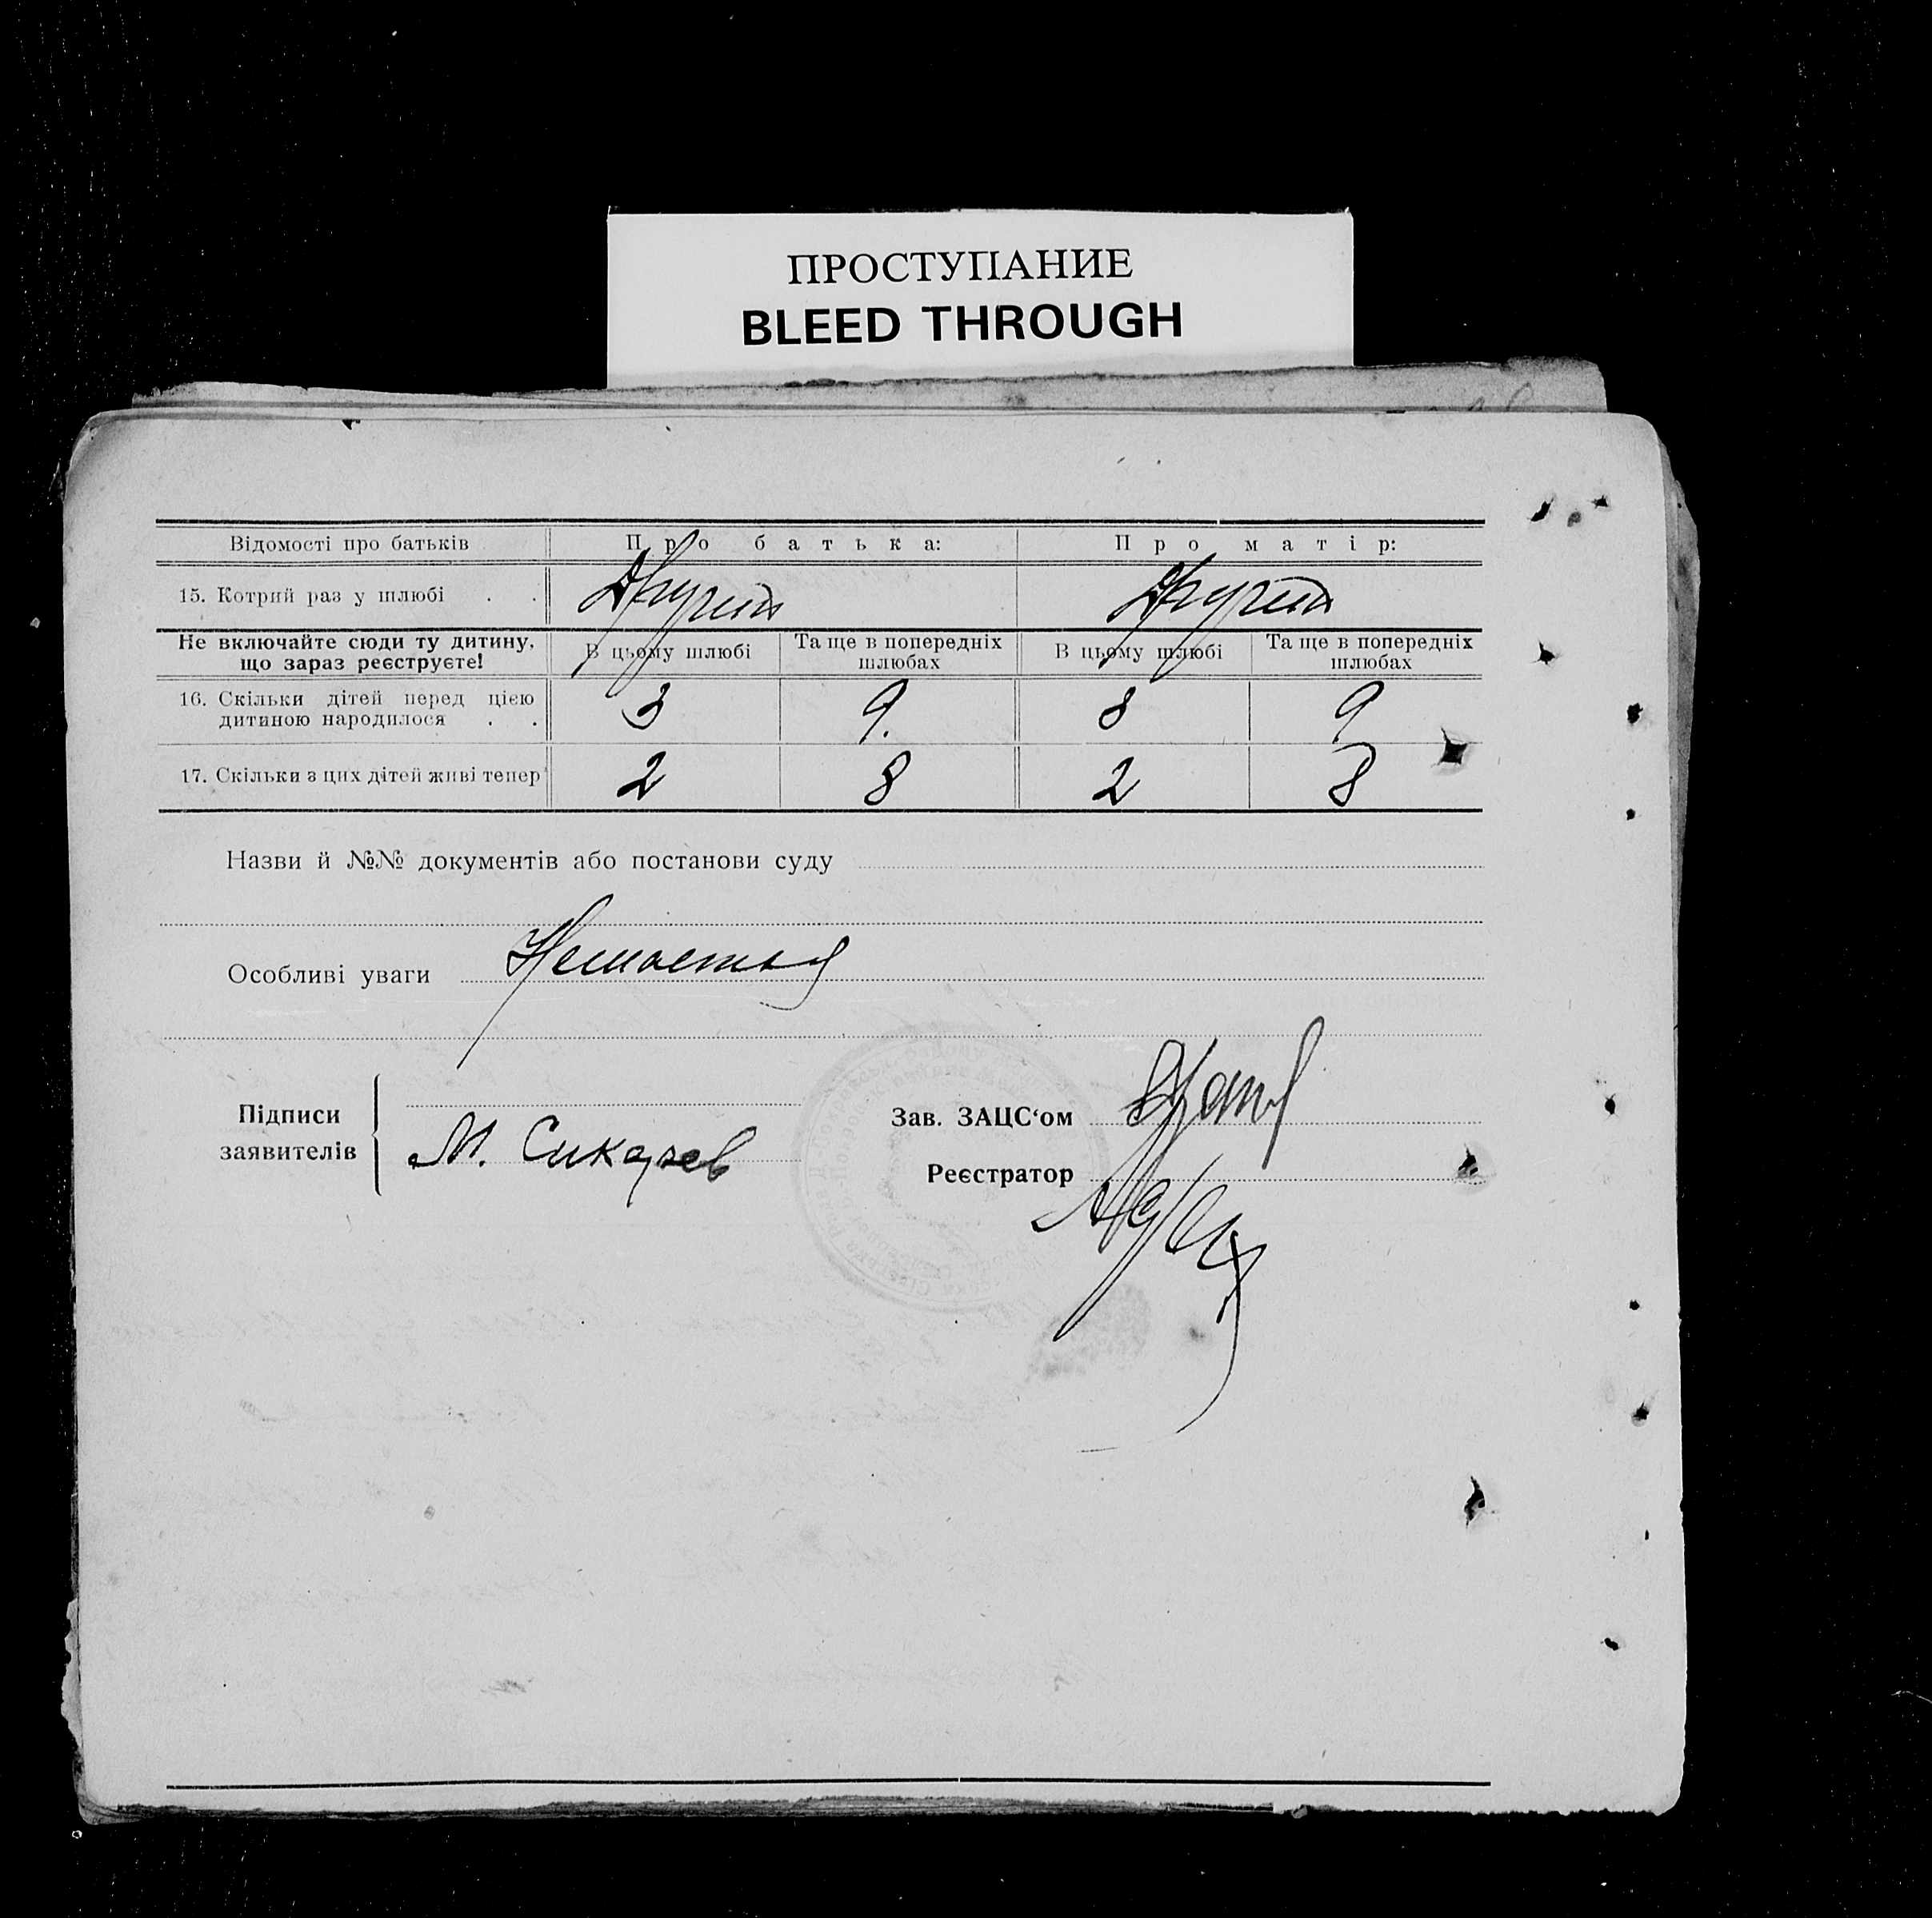 ПРОСТУПАНИЕ
BLEED THROUGH
Відомості про батьків Про батька: Про матір:
15. Котрий раз у шлюбі . . Другий Другий
Не включайте сюди ту дитину, що зараз реєструєте! В цьому шлюбі Та ще в попередніх шлюбах В цьому шлюбі Та ще в попередніх шлюбах
16. Скільки дітей перед цією
дитиною народилося . . 3 9. 3 9
17. Скільки з цих дітей живі тепер 2 8 2 8
Назви й №№ документів або постанови суду
Особливі уваги
Підписи заявителів М.
Зав. ЗАЦС‘ом
Реєстратор